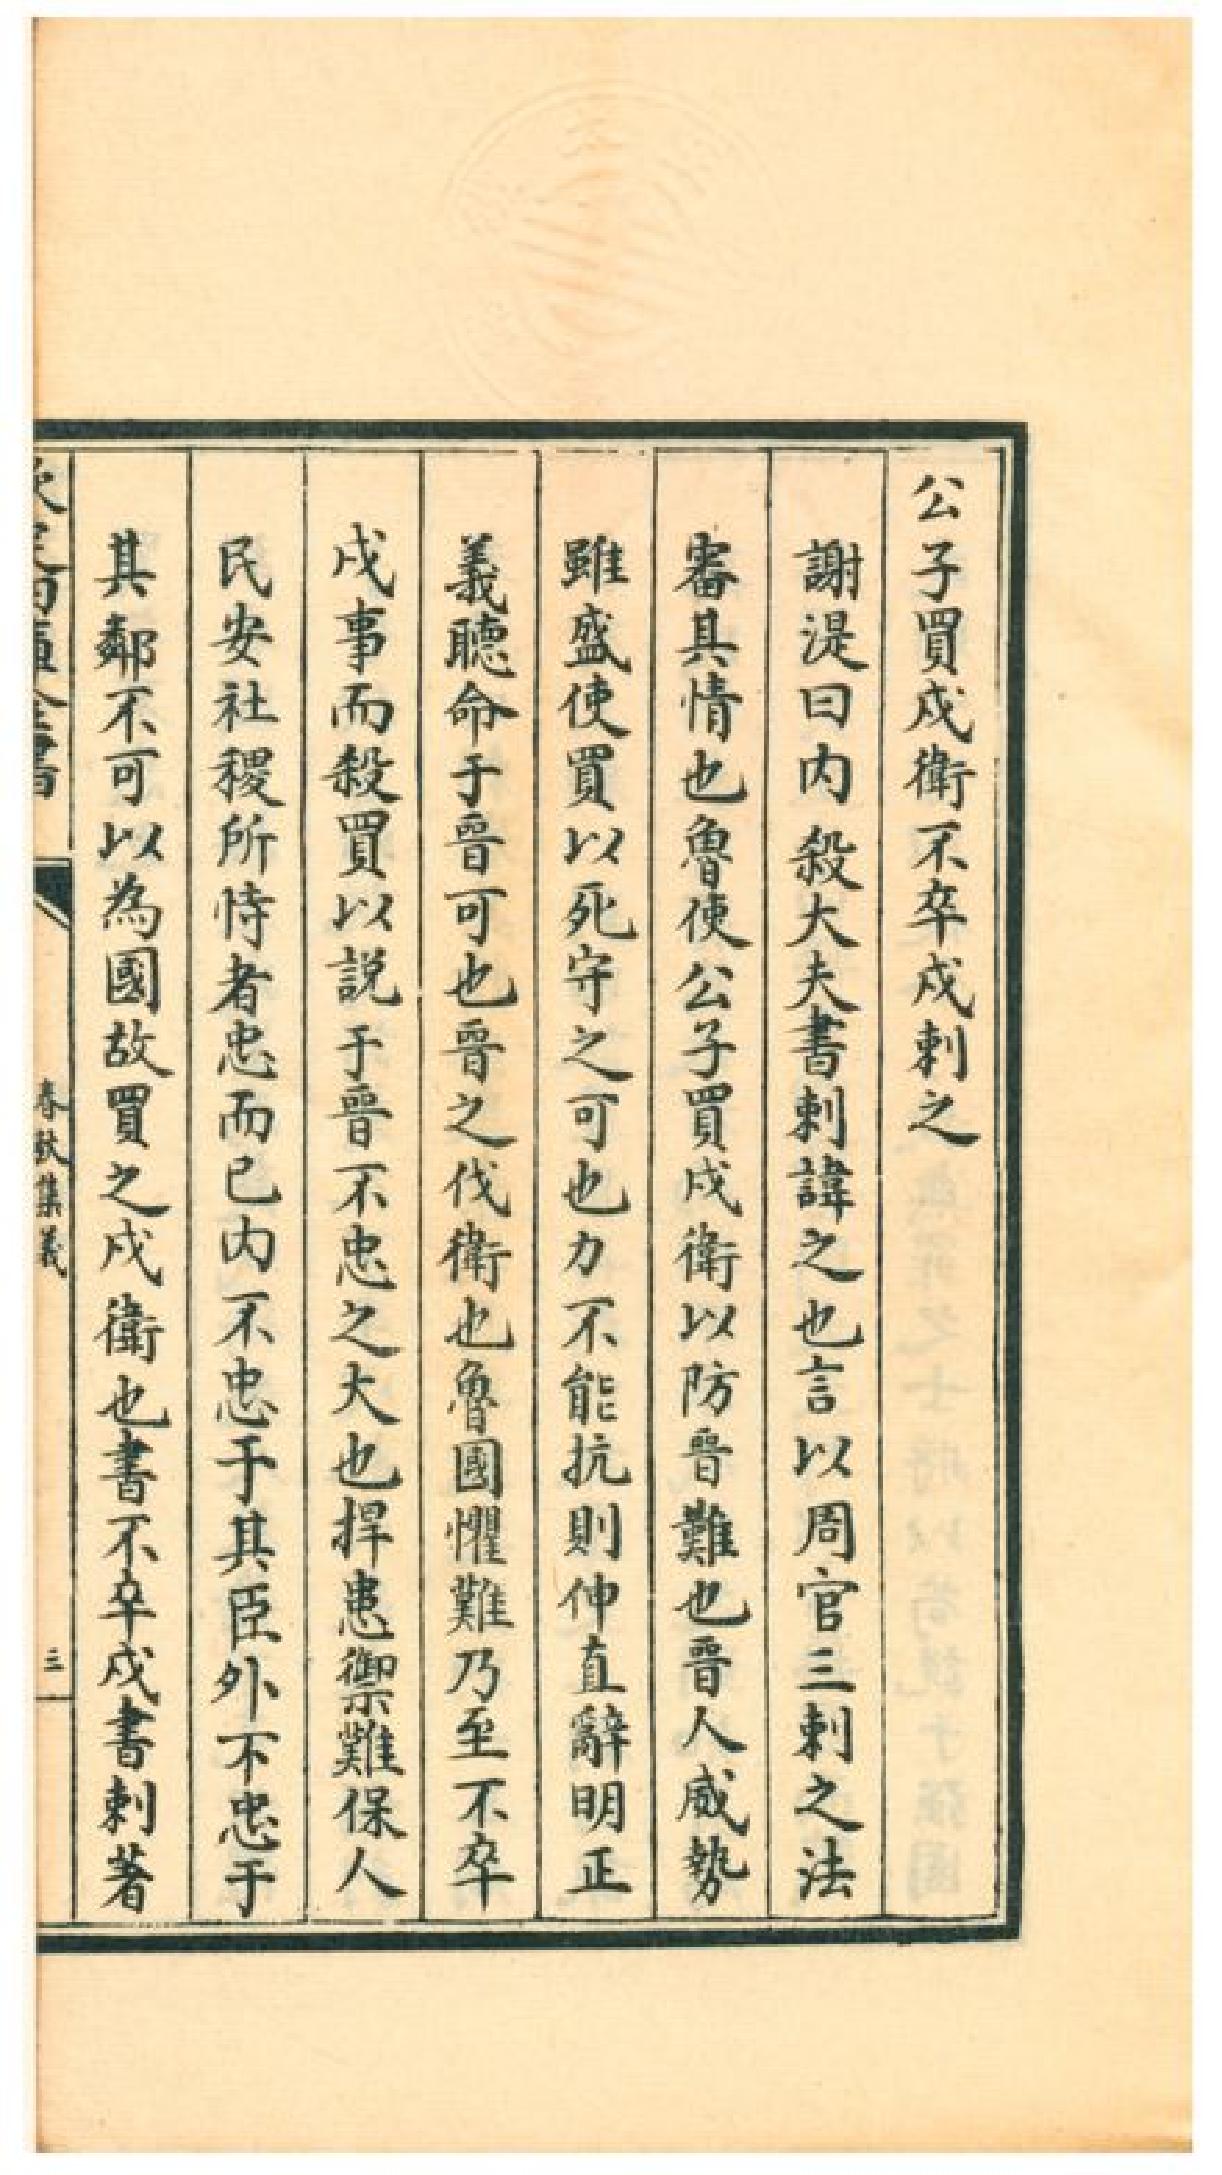 公子買戍衛不卒戍刺之
謝湜曰内殺大夫書刺諱之也言以周官三刺之法
審其情也魯使公子買戍衛以防晉難也晉人威勢
雖盛使買以死守之可也力不能抗則伸直辭明正
義聽命于晉可也晉之伐衛也魯國懼難乃至不卒
戍事而殺買以説于晉不忠之大也捍患禦難保人
民安社稷所恃者忠而已内不忠于其臣外不忠于
其鄰不可以為國故買之戍衛也書不卒戍書刺著
春秋集義
三